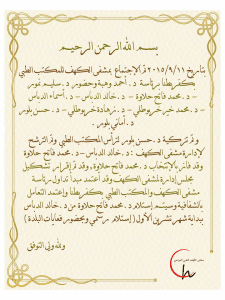 بسم الله الرحمن الرحيم
بتاريخ ٢٠١٥/٩/١١ تم الإجتماع بمشفى الكهف للمكتب الطبي
كفريطنا برئاسة د. أحمد وهبة وحضور د. سليم نمور
- د. محمد فاتح حلاوة - د. خالد الدباس - د. أسماء الدباس
- د. محمد خير خربوطلي - د. زهادة خربوطلي - د. حسن بلور
د. أماني بلور.
وتم تزكية د. حسن بلور لترأس المكتب الطبي وتم الترشح
لإدارة مشفى الكهف: د. خالد الدباس - د. محمد فاتح حلاوة
وقد فاز بالإنتخاب د. محمد فاتح حلاوة. وقد تم إقرار تشكيل
مجلس إدارة لمشفى الكهف وقد أعتمد مبدأ تداول رئاسة
مشفى الكهف والمكتب الطبي كفريطنا وإعتمد التعامل
بالشفافية وسيتم إستلام د. محمد فاتح حلاوة من د. خالد الدباس
بداية شهر تشرين الأول (إستلام رسمي وبحضور فعاليات البلدة)
والله ولي التوفيق